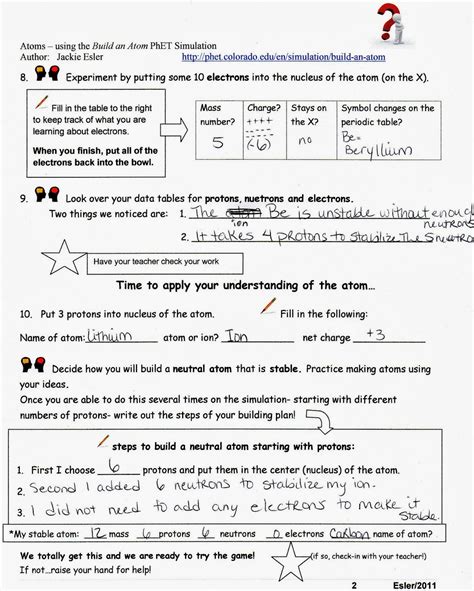 Atoms – using the Build an Atom PhET Simulation
Author: Jackie Esler http://phet.colorado.edu/en/simulation/build-an-atom
8. Experiment by putting some 10 electrons into the nucleus of the atom (on the X).
Fill in the table to the right
to keep track of what you are
learning about electrons.
When you finish, put all of the
electrons back into the bowl.
Mass number? Charge? Stays on the X? Symbol changes on the periodic table?
++++
5 (-6) no Be= Beryllium
9. Look over your data tables for protons, nuetrons and electrons.
Two things we noticed are: 1. The ion Be is unstable without enough neutrons
2. It takes 4 protons to stabilize The 5 neutron
Have your teacher check your work
Time to apply your understanding of the atom…
10. Put 3 protons into nucleus of the atom. Fill in the following:
Name of atom: Lithium atom or ion? Ion net charge +3
Decide how you will build a neutral atom that is stable. Practice making atoms using
your ideas.
Once you are able to do this several times on the simulation- starting with different
numbers of protons- write out the steps of your building plan!
steps to build a neutral atom starting with protons:
1. First I choose 6 protons and put them in the center (nucleus) of the atom.
2. Second I added 6 neutrons to stabilize my ion.
3. I did not need to add any electrons to make it stable.
*My stable atom: 12 mass 6 protons 6 neutrons 0 electrons Carbon name of atom?
We totally get this and we are ready to try the game! (if so, check-in with your teacher!)
If not…raise your hand for help!
2 Esler/2011